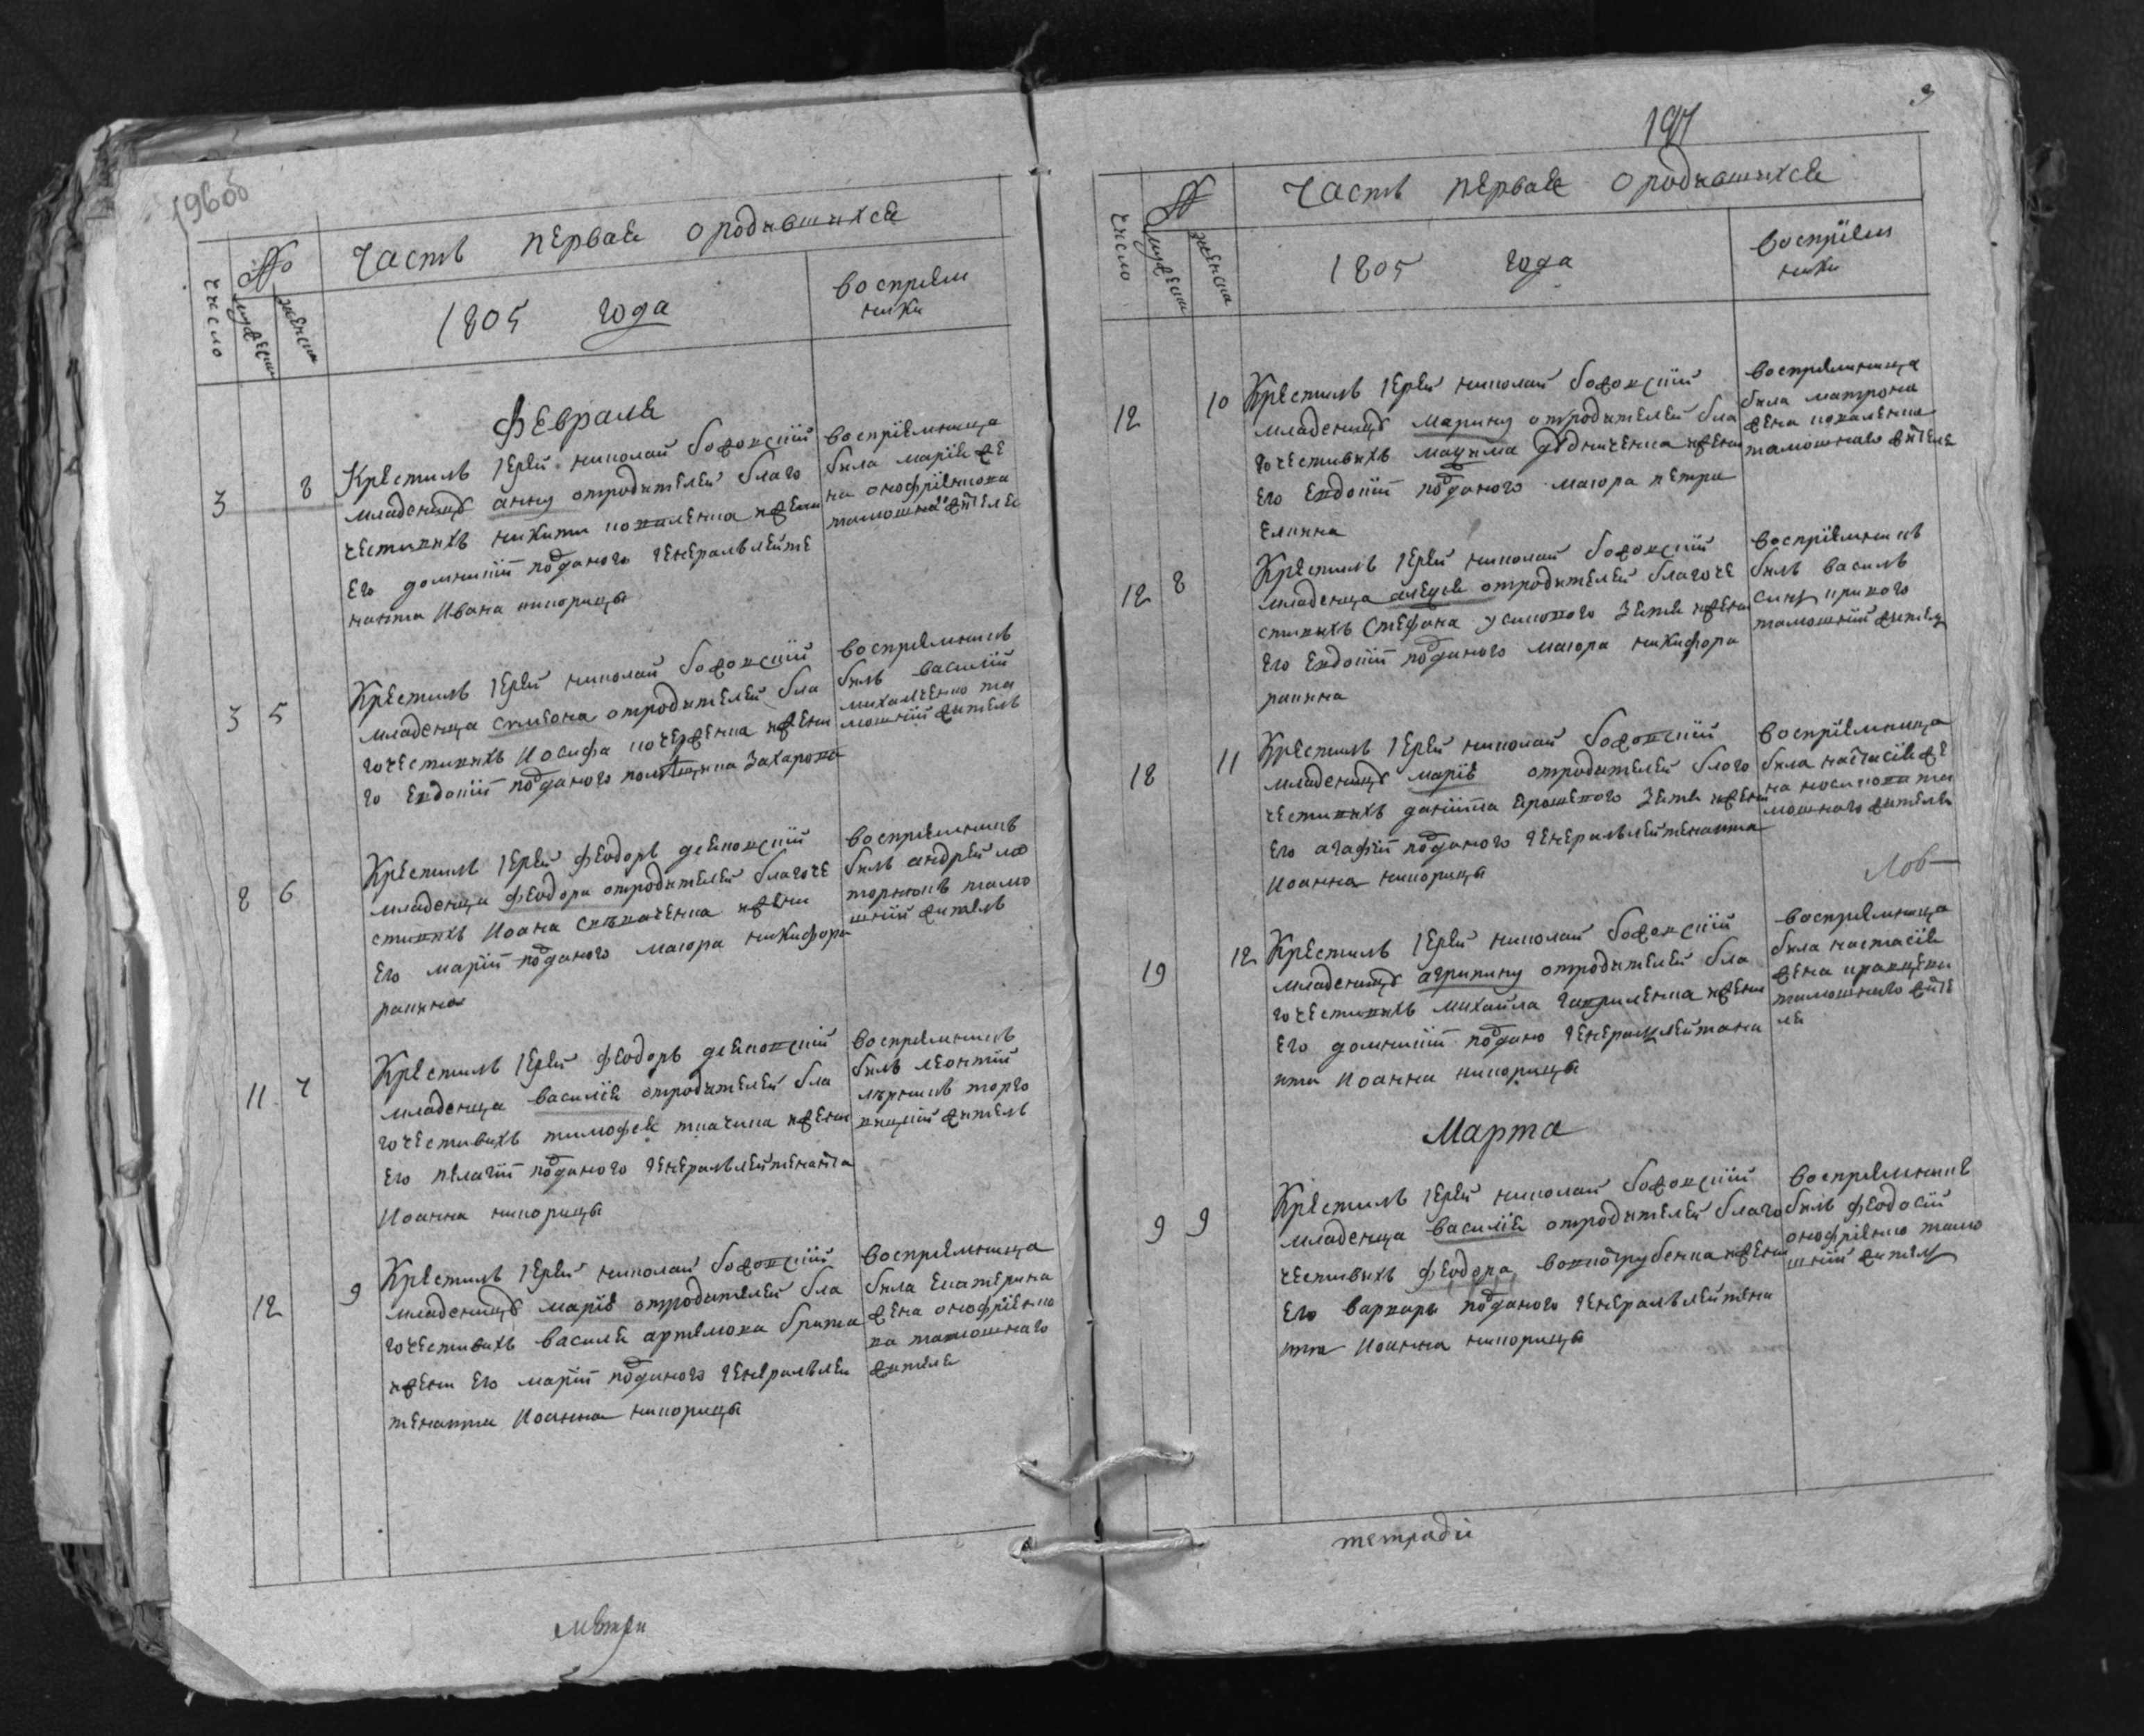 196об
Часть первая о родившихся
№
Число
мужеск
женска
1805 года
восприем
ники
Февраля
3 8 Крестилъ іерей николай божовскій
младеницу анну отродителей благо
честивихъ никити коваленка ижени
его домникіи подданого генералълейте
нанта Ивана никорицы
восприемница
била марія же
на онофріенкова
тамошна жителя
3 5 Крестилъ іерей николай божовскій
младенца симеона отродителей бла
гочестивихъ иосифа ижени е
го евдокіи подданого помѣщика Захарова
восприемникъ
билъ василій
михалченко та
мошній житель
8 6 Крестилъ іерей феодоръ
младенца феодора отродителей благоче
стивихъ иоана ижени
его маріи подданого маіора никифора
восприемникъ
билъ андрей
тамо
шній житель
11 7 Крестилъ іерей феодоръ
младенца василія отродителей бла
гочестивихъ тимофея ткачика ижени
его пелагіи подданого генералълейтенанта
иоанна никорицы
восприемникъ
билъ леонтій
житель
12 9 Крестилъ іерей николай божовскій
младеницу марію отродителей бла
гочестивихъ василя артемова брата
ижени его маріи подданого генералълей
тенанта иоанна никорицы
восприемница
била екатерина
жена онофріенко
ва тамошнаго
жителя
метри
197
9
Часть первая о родившихся
№
Число
мужеск
женска
1805 года
воспріем
ники
12 10 Крестилъ іерей николай божовскій
младеницу марину отродителей бла
гочестивихъ ижени
его евдокіи подданого маіора петра
воспріемница
била матрона
жена коваленка
тамошнаго жителя
12 8 Крестилъ іерей николай божовскій
младенца алеѯея отродителей благоче
стивихъ стефана зятя ижени
его евдокіи подданого маіора никифора
воспріемникъ
билъ василь
тамошній житель
18 11 Крестилъ іерей николай божовскій
младеницу марію отродителей благо
честивихъ даніила зятя ижени
его агафіи подданого генералълейтенанта
иоанна никорицы
воспріемница
била настасія же
на та
мошнаго жителя
19 12 Крестилъ іерей николай божовскій
младеницу агрипину отродителей бла
гочестивихъ михайла гавриленка ижени
его домникіи поддано генералълейтена
нта иоанна никорицы
восприемница
била настасія
жена кравцева
тамошнаго жите
ля
Марта
9 9 Крестилъ іерей николай божовскій
младенца василія отродителей благо
честивихъ феодора ижени
его варвары подданого генералълейтена
нта иоанна никорицы
восприемникъ
билъ феодосій
онофріенко тамо
шній житель
тетради